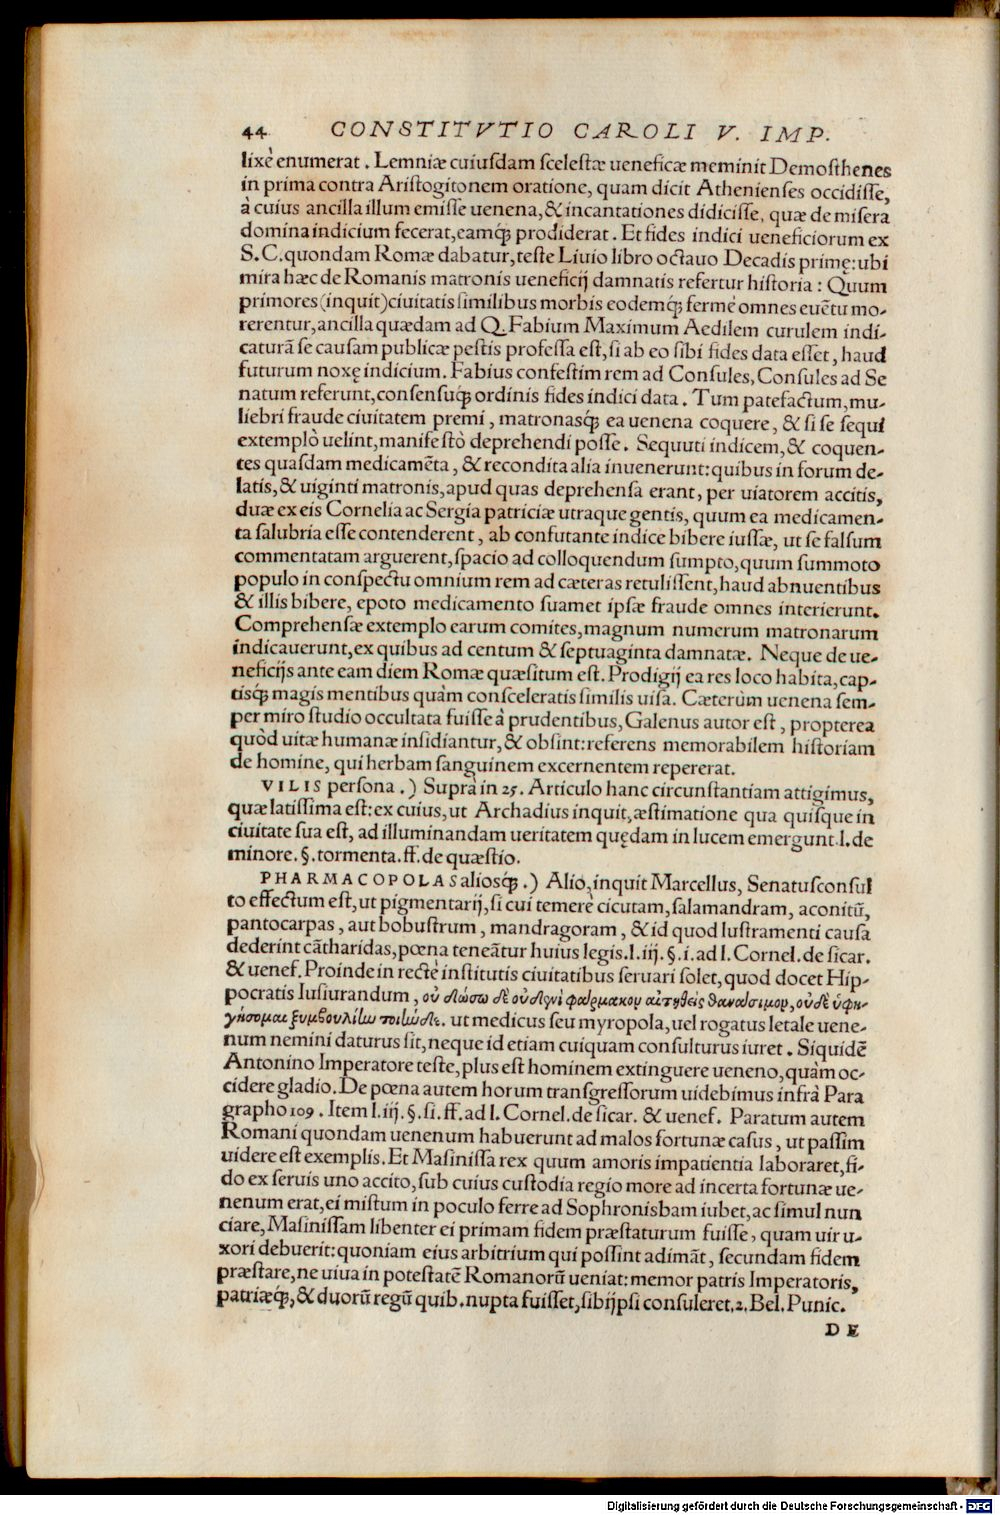 44 CONSTITVTIO CAROLI V. IMP.
lixè enumerat. Lemniæ cuiusdam scelestæ ueneficæ meminit Demosthenes
in prima contra Aristogitonem oratione, quam dicit Athenienses occidisse,
à cuius ancilla illum emisse uenena, & incantationes didicisse, quæ de misera
domina indicium fecerat, eamq́; prodiderat. Et fides indici ueneficiorum ex
S.C. quondam Romæ dabatur, teste Liuio libro octauo Decadis primę: ubi
mira hæc de Romanis matronis ueneficij damnatis refertur historia: Quum
primores (inquit) ciuitatis similibus morbis eodemq́; fermè omnes euẽtu mo-
rerentur, ancilla quædam ad Q. Fabium Maximum Aedilem curulem indi-
caturã se causam publicæ pestis professa est, si ab eo sibi fides data esset, haud
futurum noxę indicium. Fabius confestim rem ad Consules, Consules ad Se
natum referunt, consensuq́; ordinis fides indici data. Tum patefactum, mu-
liebri fraude ciuitatem premi, matronasq́; ea uenena coquere, & si se sequi
extemplò uelint, manifestò deprehendi posse. Sequuti indicem, & coquen-
tes quasdam medicamẽta, & recondita alia inuenerunt: quibus in forum de-
latis, & uiginti matronis, apud quas deprehensa erant, per uiatorem accitis,
duæ ex eis Cornelia ac Sergia patriciæ utraque gentis, quum ea medicamen-
ta salubria esse contenderent, ab confutante indice bibere iussæ, ut se falsum
commentatam arguerent, spacio ad colloquendum sumpto, quum summoto
populo in conspectu omnium rem ad cæteras retulissent, haud abnuentibus
& illis bibere, epoto medicamento suamet ipsæ fraude omnes interierunt.
Comprehensæ extemplo earum comites, magnum numerum matronarum
indicauerunt, ex quibus ad centum & septuaginta damnatæ. Neque de ue-
neficijs ante eam diem Romæ quæsitum est. Prodigij ea res loco habita, cap-
tisq́; magis mentibus quàm consceleratis similis uisa. Cæterùm uenena sem-
per miro studio occultata fuisse à prudentibus, Galenus autor est, propterea
quòd uitæ humanæ insidiantur, & obsint: referens memorabilem historiam
de homine, qui herbam sanguinem excernentem repererat.
VILIS persona.) Suprà in 25. Articulo hanc circunstantiam attigimus,
quæ latissima est: ex cuius, ut Archadius inquit, æstimatione qua quisque in
ciuitate sua est, ad illuminandam ueritatem quędam in lucem emergunt. l. de
minore. §. tormenta. ff. de quæstio.
PHARMACOPOLAS aliosq́;.) Alio, inquit Marcellus, Senatusconsul
to effectum est, ut pigmentarij, si cui temerè cicutam, salamandram, aconitũ,
pantocarpas, aut bobustrum, mandragoram, & id quod lustramenti causa
dederint cãtharidas, pœna teneãtur huius legis. l. iij. §. i. ad l. Cornel. de sicar.
& uenef. Proinde in rectè institutis ciuitatibus seruari solet, quod docet Hip-
pocratis Iusiurandum, οὐ δώσω δὲ οὐδενὶ φάρμακον αἰτηθεὶς θανάσιμον, οὐδὲ ὑφη-
γήσομαι ξυμβουλίην τοιήνδε. ut medicus seu myropola, uel rogatus letale uene-
num nemini daturus sit, neque id etiam cuiquam consulturus iuret. Siquidẽ
Antonino Imperatore teste, plus est hominem extinguere ueneno, quàm oc-
cidere gladio. De pœna autem horum transgressorum uidebimus infrà Para
grapho 109. Item l. iij. §. si. ff. ad l. Cornel. de sicar. & uenef. Paratum autem
Romani quondam uenenum habuerunt ad malos fortunæ casus, ut passim
uidere est exemplis. Et Masinissa rex quum amoris impatientia laboraret, fi-
do ex seruis uno accito, sub cuius custodia regio more ad incerta fortunæ ue-
nenum erat, ei mistum in poculo ferre ad Sophronisbam iubet, ac simul nun
ciare, Masinissam libenter ei primam fidem præstaturum fuisse, quam uir u-
xori debuerit: quoniam eius arbitrium qui possint adimãt, secundam fidem
præstare, ne uiua in potestatẽ Romanorũ ueniat: memor patris Imperatoris,
patriæq́;, & duorũ regũ quib. nupta fuisset, sibijpsi consuleret. 2. Bel. Punic.
DE
Digitalisierung gefördert durch die Deutsche Forschungsgemeinschaft - DFG